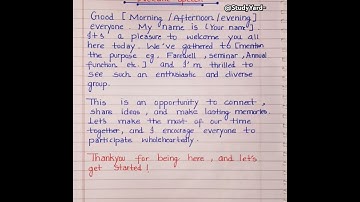 @StudyYard-
Welcome Speech
Good [Morning /Afternoon/evening]
everyone. My name is (Your name).
It's a pleasure to welcome you all
here today. We've gathered to [mention
the purpose eg. Farewell, seminar, Annual
function etc.] and I'm thrilled to
see such an enthusiastic and diverse
group.
This is an opportunity to connect,
share ideas, and make lasting memories.
Let's make the most of our time
together, and I encourage everyone to
participate wholeheartedly.
Thankyou for being here, and let's
get started!